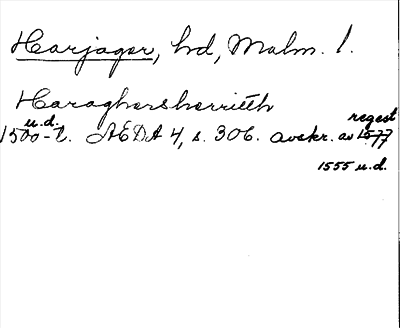 Harjager, hd, Malm. l.
Haraghersherrith
u.d. regest
1500-t. AEDA 4, s. 306. avskr. av 1577
1555 u.d.